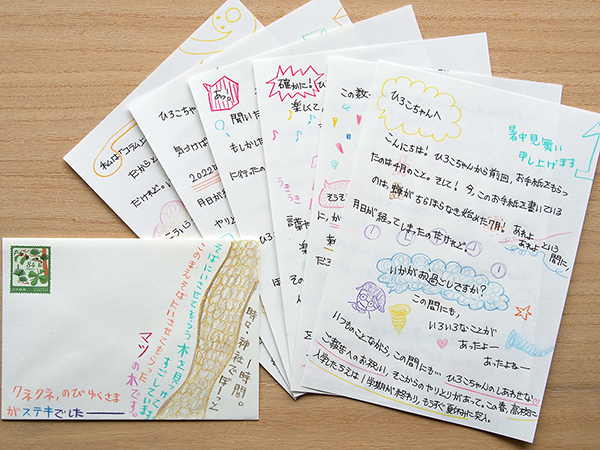 ひろこちゃんへ
暑中見舞い
申し上げます
こんにちは! ひろこちゃんから前回、お手紙をもらっ
たのは4月のこと。そして! 今、このお手紙を書いている
のは、蝉がちらほらなき始めた7月! あれよ
あれよという
間に、
月日が経ってしまったのだけれど。
いかがお過ごしですか?
この間にも、
いろいろなことが
あったよー
あったよねー
いつものことながら、この間にも… ひろこちゃんのしあわせな
ご報告へのお祝い、そこからのやりとりがあって。この春、高校に
入学したうえは1学期が終わり、もうすぐ夏休みに突入。
この数
確かに!
楽しくて
うきうき
あっ。
聞いた
もしかし
に行ったの
ひろこち
気づけば
2022
月日が
私は
だから
だけれど。
84
時々、神社でぼーっと
時間。
そばにいさせてもらう木を見つけて
すごしています。
このまえそばにいさせてもらった
マツの木です。
クネクネ、のびゆくさま
がステキでした